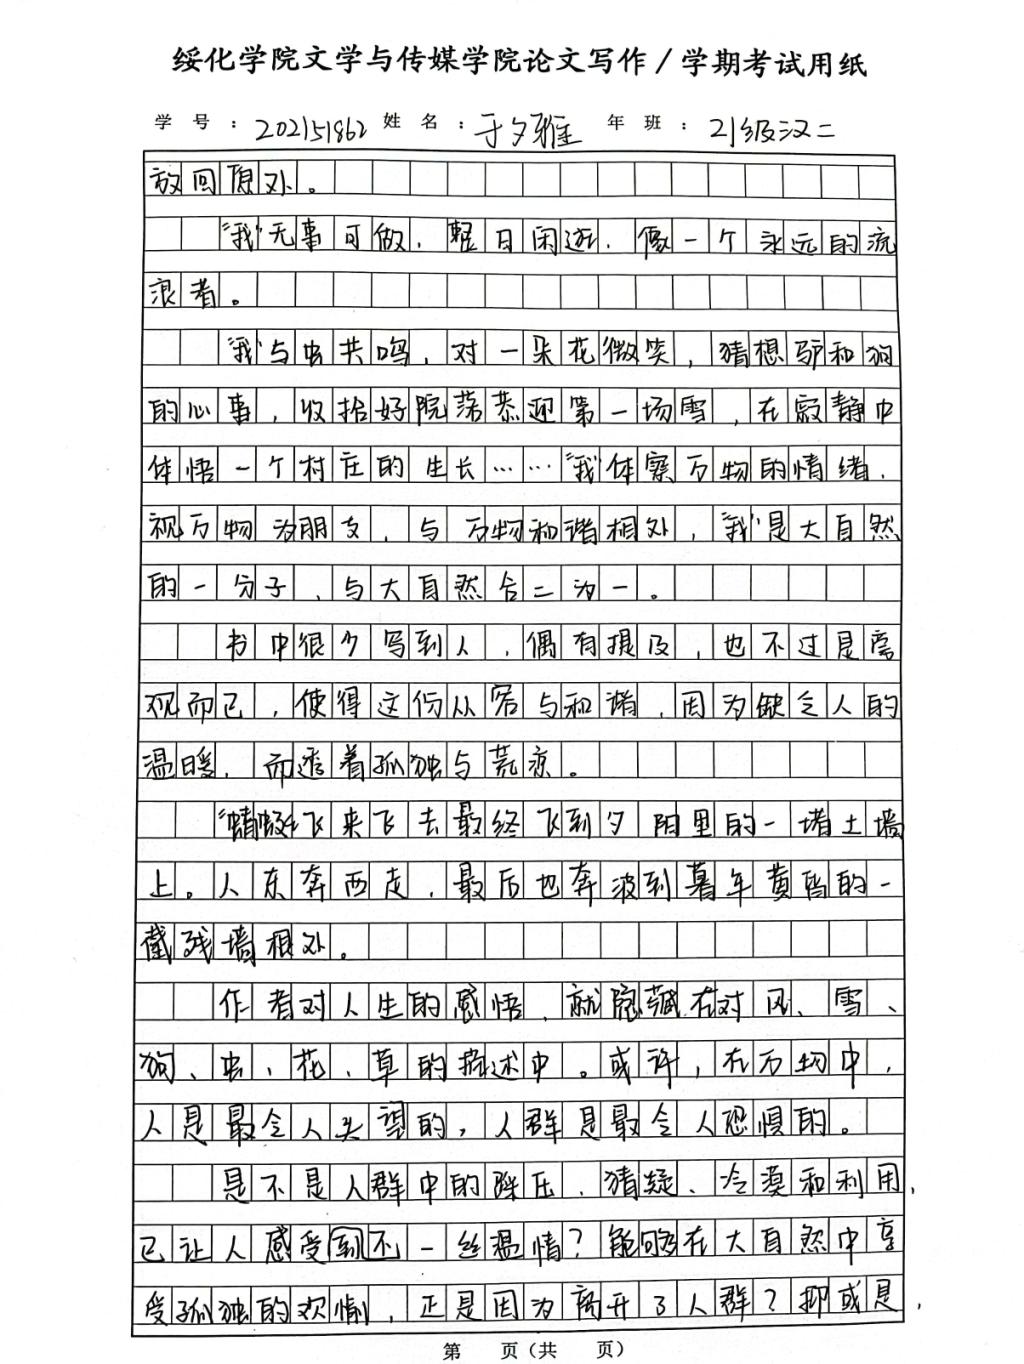 绥化学院文学与传媒学院论文写作/学期考试用纸
学号：202151862 姓名：于夕雅 年班：21级汉二
放回原处。
“我”无事可做，整日闲逛，像一个永远的流
浪者。
“我”与虫共鸣，对一朵花微笑，猜想驴和狗
的心事，收拾好院落恭迎第一场雪，在寂静中
体悟一个村庄的生长……“我”体察万物的情绪，
视万物为朋友，与万物和谐相处，“我”是大自然
的一分子，与大自然合二为一。
书中很少写到人，偶有提及，也不过是旁
观而已，使得这份从容与和谐，因为缺乏人的
温暖，而透着孤独与荒凉。
“蜻蜓飞来飞去最终飞到夕阳里的一堵土墙
上。人东奔西走，最后也奔波到暮年黄昏的一
截残墙根处。
作者对人生的感悟，就隐藏在对风、雪、
狗、虫、花、草的描述中。或许，在万物中，
人是最令人失望的，人群是最令人恐惧的。
是不是人群中的踩压、猜疑、冷漠和利用，
已让人感受到不一丝温情？能够在大自然中享
受孤独的欢愉，正是因为离开了人群？抑或是，
第 页（共 页）